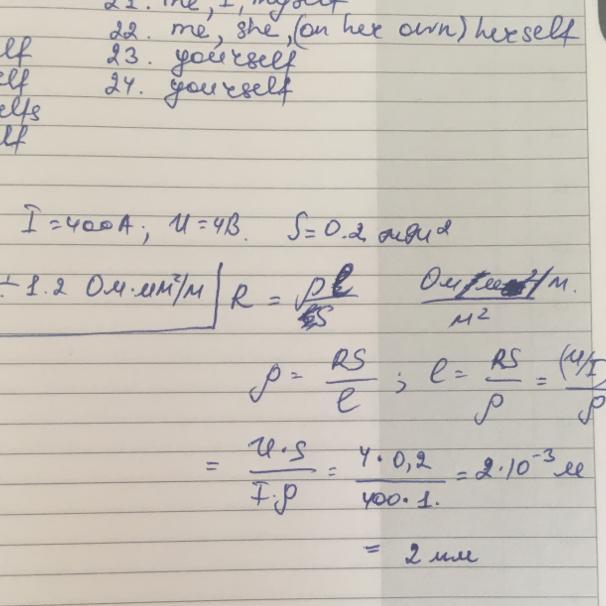 21. me, I, myself
22. me, she, (on her own) herself
23. yourself
24. yourself
elf
elf
elfs
elf
I = 400A; U = 4В. S = 0.2 мм²
÷ 1.2 Ом·мм²/м
R = ρl/S
Ом /м.
м²
ρ = RS/l ; l = RS/ρ = (U/I)/ρ
= U·S/I·ρ = 4·0,2/400·1. = 2·10⁻³ м
= 2 мм